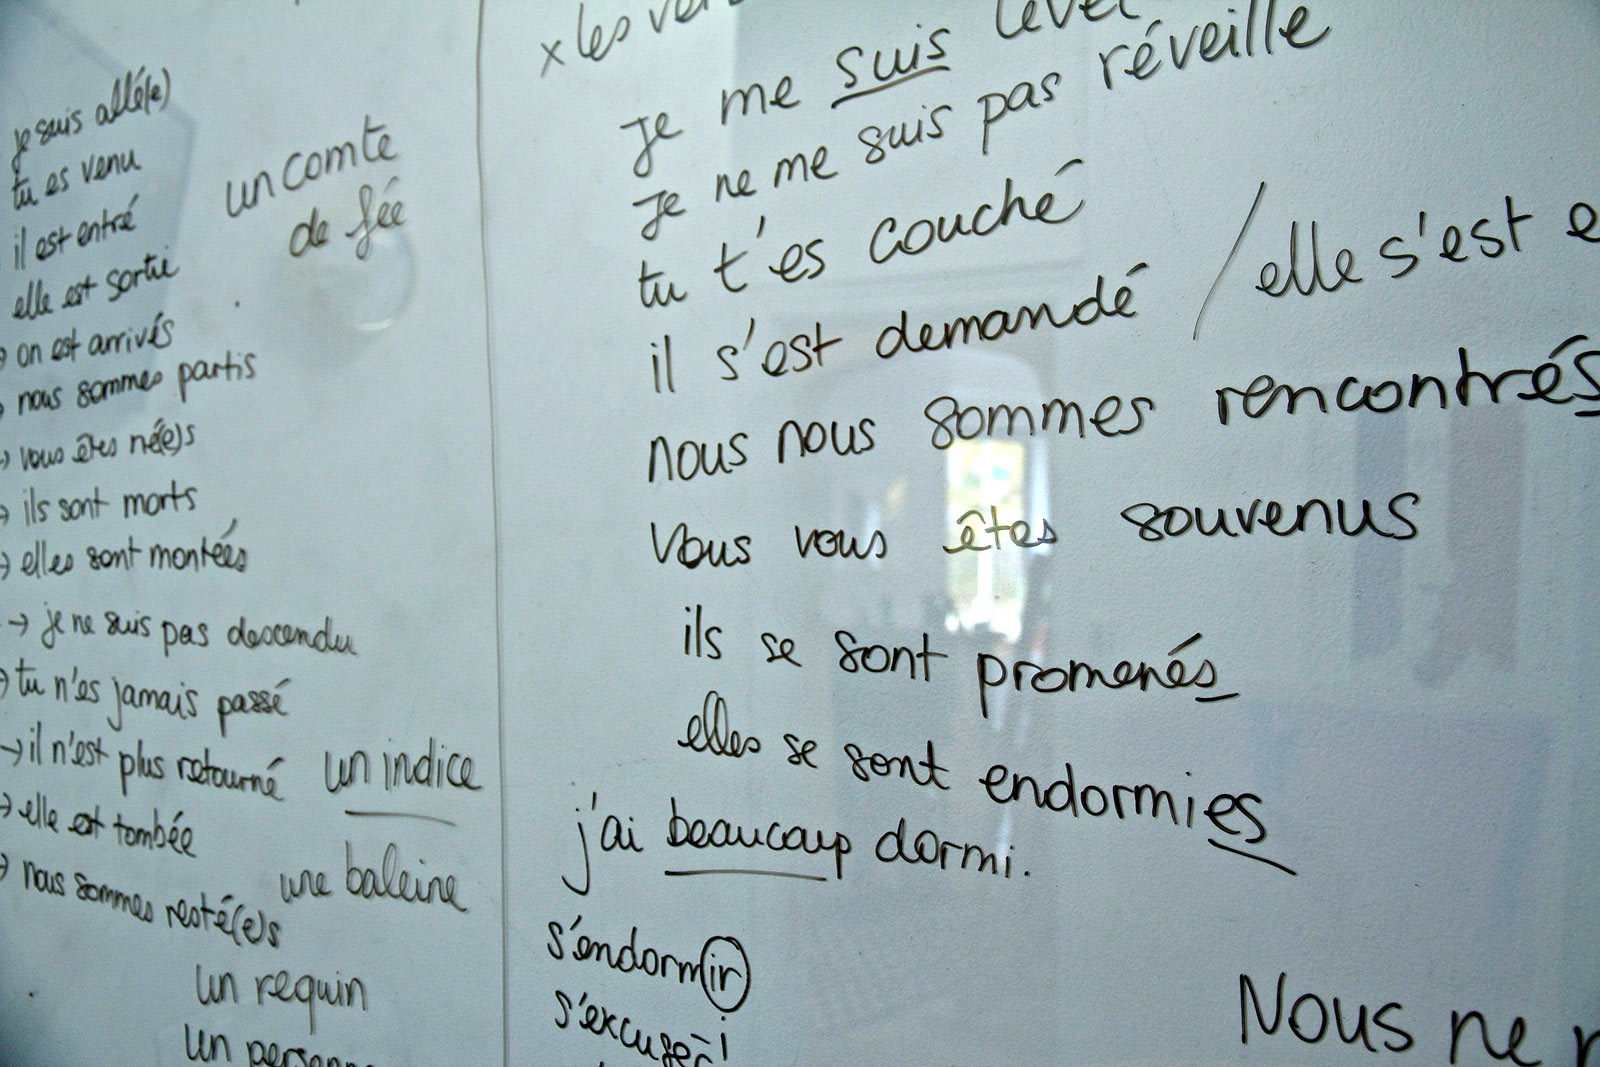 je suis allé(e)
tu es venu
il est entré
elle est sortie
→ on est arrivés
→ nous sommes partis
→ vous êtes né(e)s
→ ils sont morts
→ elles sont montées
→ je ne suis pas descendu
→ tu n'es jamais passé
→ il n'est plus retourné
→ elle est tombée
→ nous sommes resté(e)s
un comte
de fée
un indice
une baleine
un requin
un
x les
je me suis
je ne me suis pas réveille
tu t'es couché
il s'est demandé / elle s'est
nous nous sommes rencontrés
vous vous êtes souvenus
ils se sont promenés
elles se sont endormies
j'ai beaucoup dormi.
s'endormir
s'excuser
Nous ne